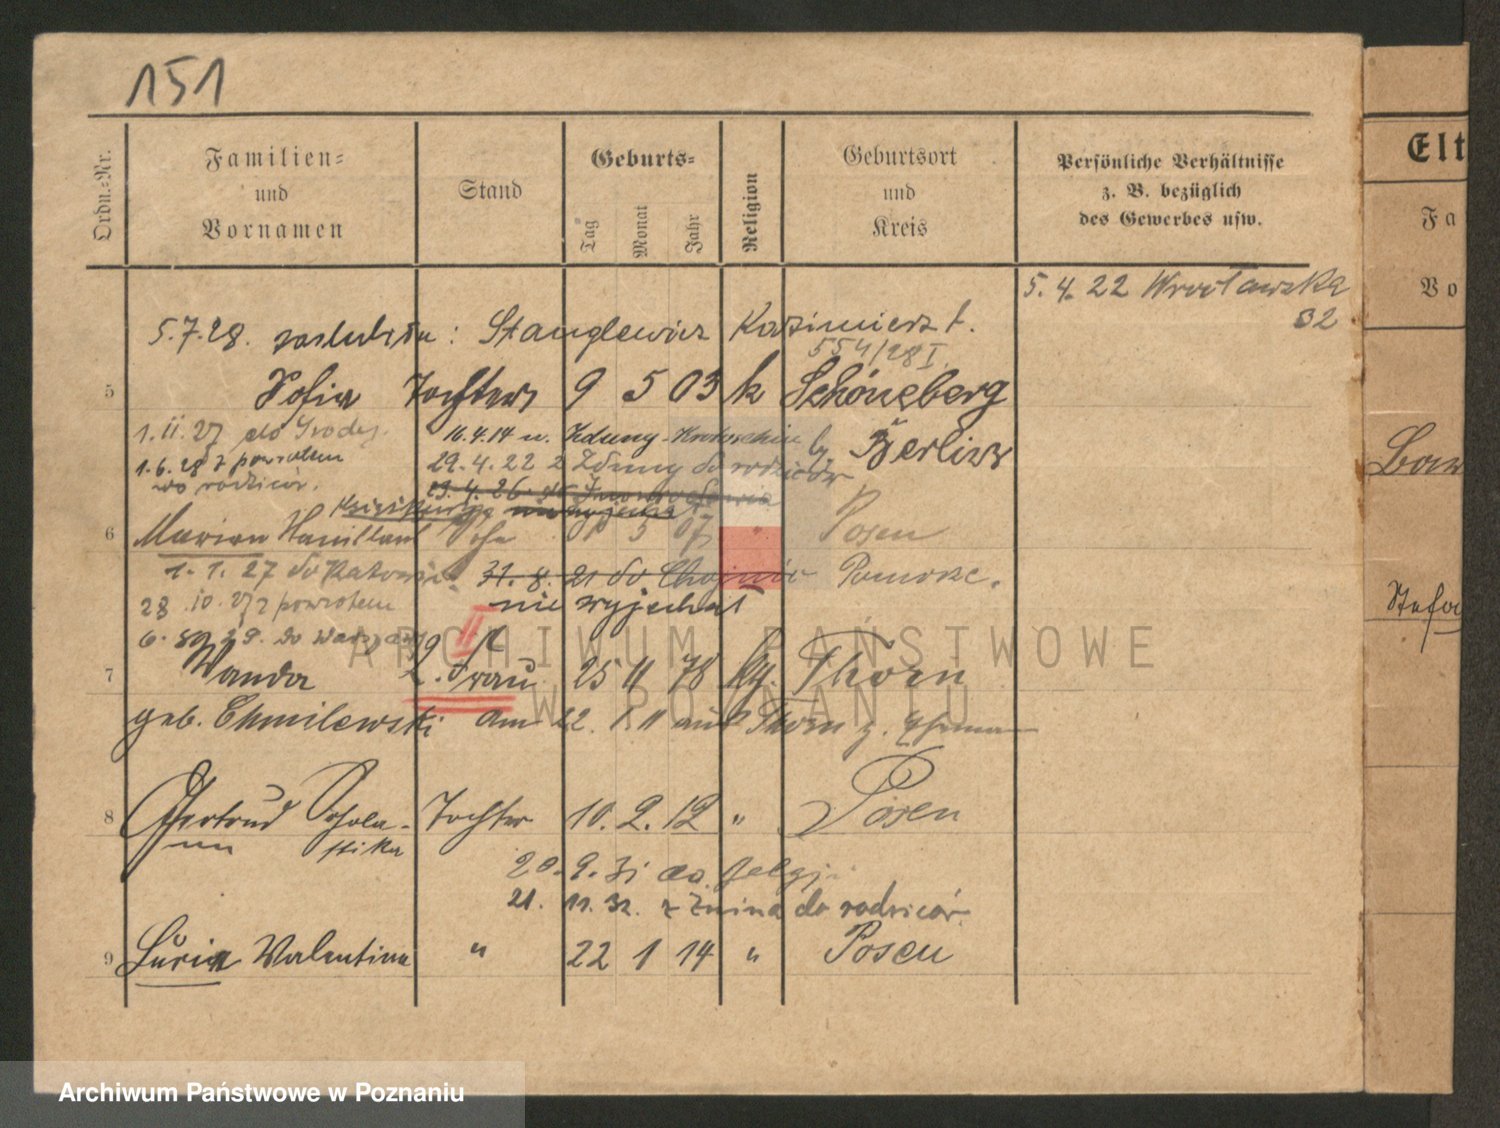 151
Ordn.=Nr.
Familien=
und
Vornamen
Stand
Geburts=
Tag
Monat
Jahr
Religion
Geburtsort
und
Kreis
Persönliche Verhältnisse
z. B. bezüglich
des Gewerbes usw.
Elt
Fa
Vo
5.4.22 Wrocławska
32
5.7.28. zaślubiła: Stanglewicz Kazimierz
554/28 I
5 Sofia Tochter 9 5 03 k Schöneberg
b. Berlin
1.II.27 do
16.4.14 n. Zduny - Krotoschin
1.6.28 z powrotem
do rodziców.
29.4.22 z Zduny do rodziców
29.4.26
nie wyjechał
6 Marian 5 07 " Posen
1.1.27 do
31.8.21 do Chojnic Pomorze.
28.10.27 z powrotem
nie wyjechał
29. do Warszawy
7 Wanda 2. Frau 25 11 78 Thorn
geb. Chmilewski am 22.1.11 aus Thorn z.
8 Gertrud Schola-
stika
Tochter 10. 2. 12 " Posen
20.9.31 do
21.11.32. z Żnina do rodziców
9 Luzia Valentina " 22 1 14 " Posen
Stefa
ARCHIWUM PAŃSTWOWE
W POZNANIU
Archiwum Państwowe w Poznaniu